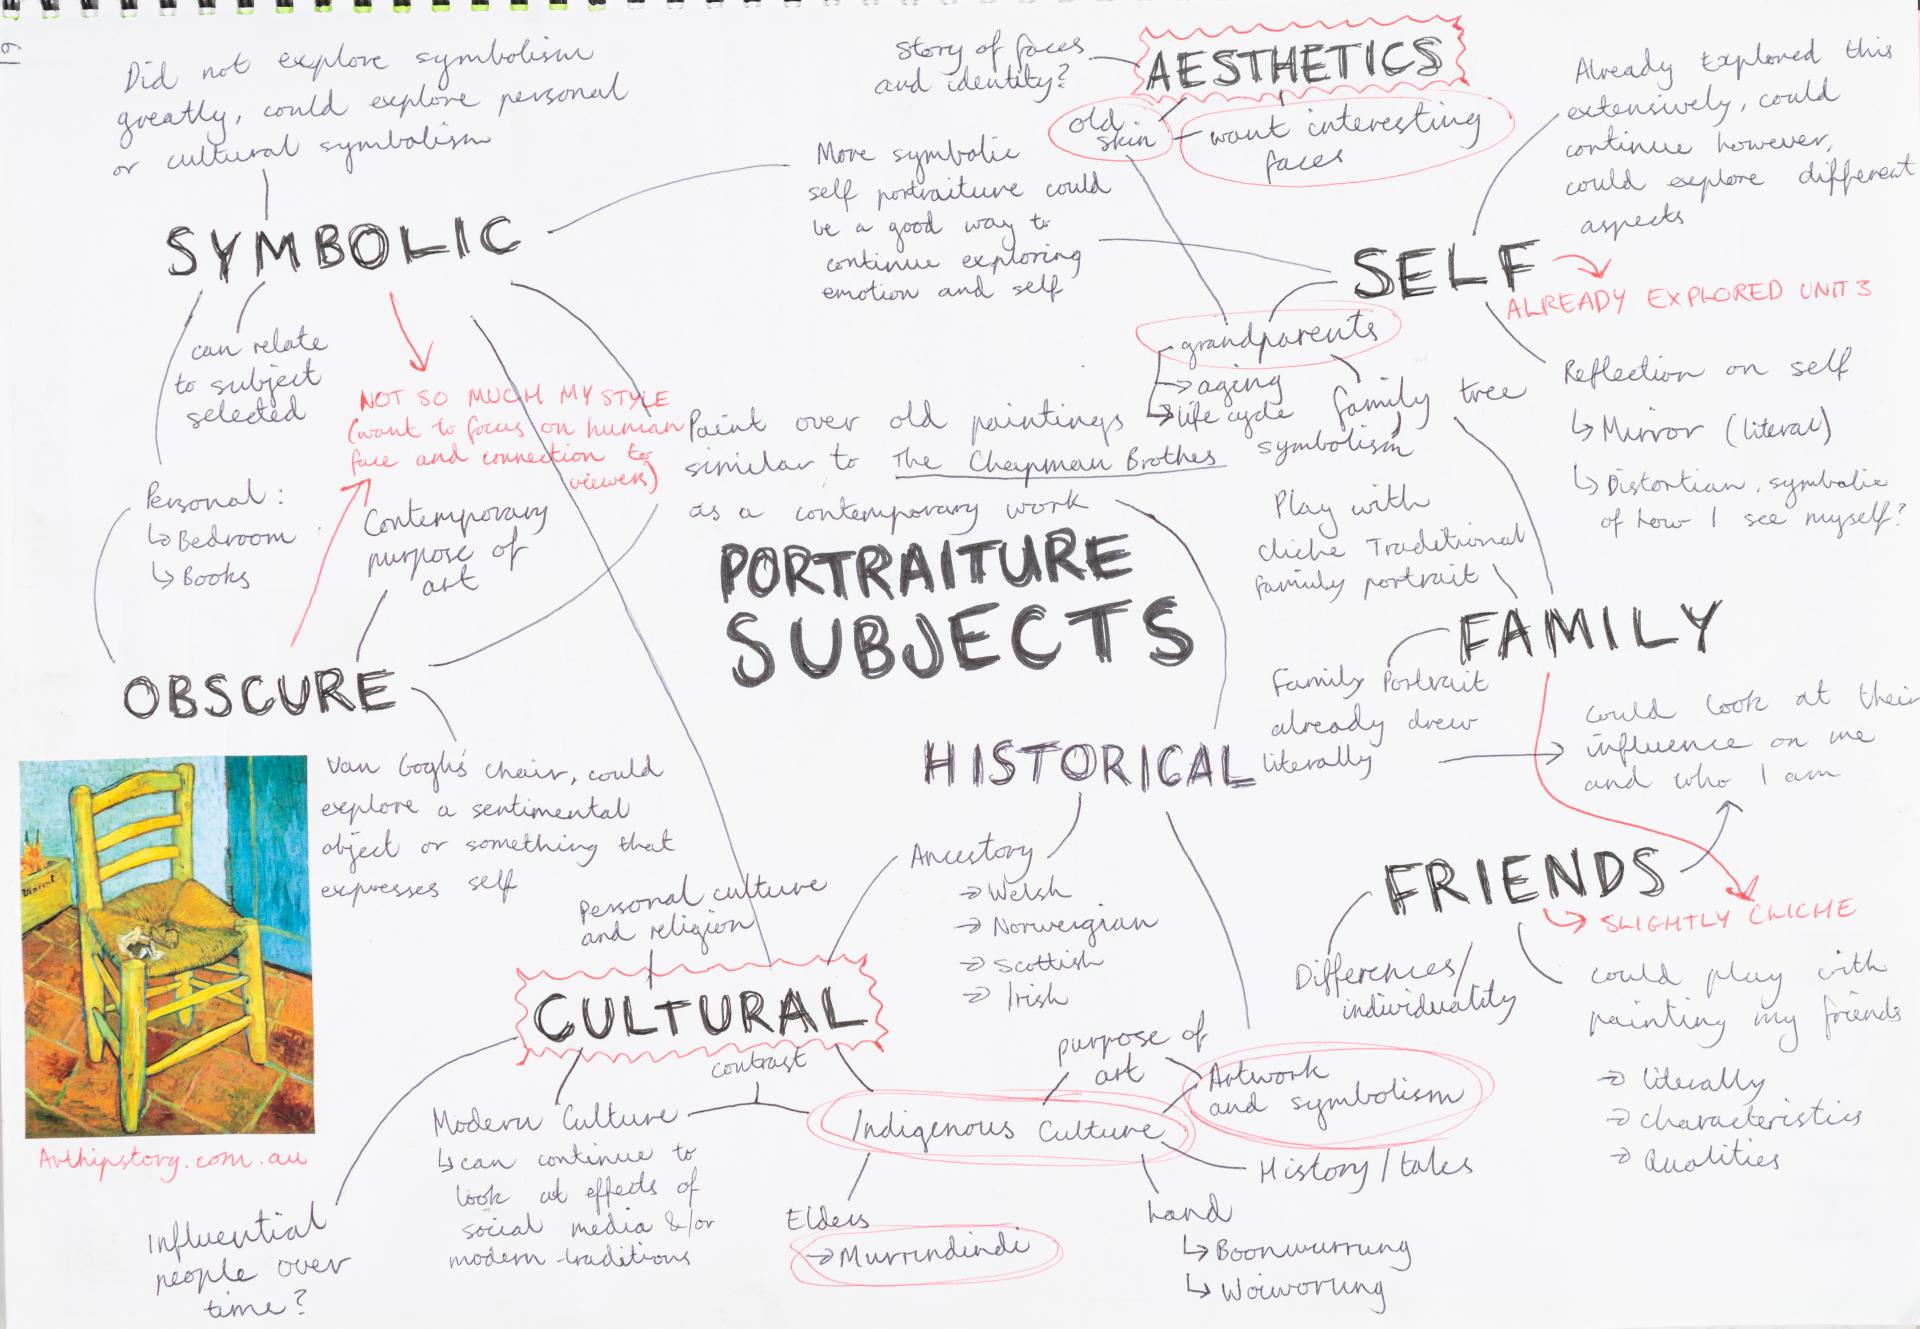 19
Did not explore symbolism
greatly, could explore personal
or cultural symbolism
SYMBOLIC
can relate
to subject
selected
NOT SO MUCH MY STYLE
(want to focus on human
face and connection to
viewers)
Personal:
↳ Bedroom
↳ Books
Contemporary
purpose of
art
OBSCURE
Van Gogh's chair, could
explore a sentimental
object or something that
expresses self
Vincent
Arthipstory.com.au
More symbolic
self portraiture could
be a good way to
continue exploring
emotion and self
Story of faces
and identity?
AESTHETICS
old
skin
want interesting
faces
Already Explored this
extensively, could
continue however,
could explore different
aspects
SELF
ALREADY EXPLORED UNIT 3
grandparents
→ aging
→ life cycle
family tree
symbolism
Reflection on self
↳ Mirror (literal)
↳ Distortian, symbolic
of how I see myself?
Paint over old paintings
similar to The Chapman Brothes
as a contemporary work
PORTRAITURE
SUBJECTS
Play with
cliche Traditional
family portrait
FAMILY
Family Portrait
already drew
literally
could look at their
influence on me
and who I am
HISTORICAL
Ancestory
→ Welsh
→ Norweigian
→ Scottish
→ Irish
FRIENDS
SLIGHTLY CLICHE
Differences/
individuality
could play with
painting my friends
→ literally
→ characteristics
→ Qualities
Personal culture
and religion
CULTURAL
contrast
Modern Culture
↳ can continue to
look at effects of
social media &/or
modern traditions
Influential
people over
time?
Indigenous Culture
purpose of
art
Artwork
and symbolism
History/tales
Elders
→ Murrindindi
Land
↳ Boonwurrung
↳ Woiworung